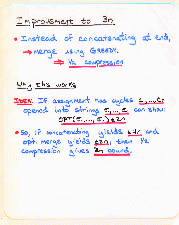 Improvement to 3n
• Instead of concatenating at end,
→ merge using GREEDY.
⇒ ½ compression
Why this works
IDEA: If assignment has cycles
opened into strings can show:
OPT
• So, if concatenating yields 4n and
opt. merge yields ≤2n, then ½
compression gives 3n bound.